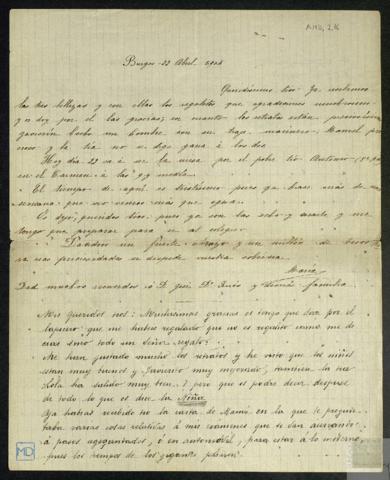 AMG, 2.16
Burgos - 22 Abril 1904
Queridísimos tíos: Ya recibimos
las dos tellejas y con ellas los regalitos que agradecemos
y doy por él las gracias; en cuanto los retratos están
Javierín hecho un hombre con su traje marinero, Manuel
y la tía no se diga gana á los dos
Hoy día 22 va á ser la misa por el pobre tío Antonio
en el Carmen á las 9 y media.
El tiempo de aquí es tristísimo pues ya hace más de una
semana que no vemos más que agua.
Os dejo, queridos tíos, pues ya son las ocho y cuarto y me
tengo que preparar para ir al colegio.
un fuerte abrazo y un millón de besos
se despide vuestra sobrina
María
Dad muchos recuerdos á D. José D. y demás familia.
Mis queridos tíos: Muchísimas gracias os tengo que dar por el
lapicero que me habéis regalado que no es regalito como me
decías sino todo un señor regalo!
Me han gustado mucho los retratos y he visto que los niños
están muy buenos y Javierito muy mejorado; también la tía
Lola ha salido muy bien, y pero que os podré decir después
de todo lo que os dice la Niña.
Ya habrás recibido tío la carta de Mamá en la que te pregun-
taba varias cosas relativas á mis exámenes que se van acercando
á pasos agigantados, ó en automóvil, para estar á lo moderno,
pues los tiempos de los gigantes
MD